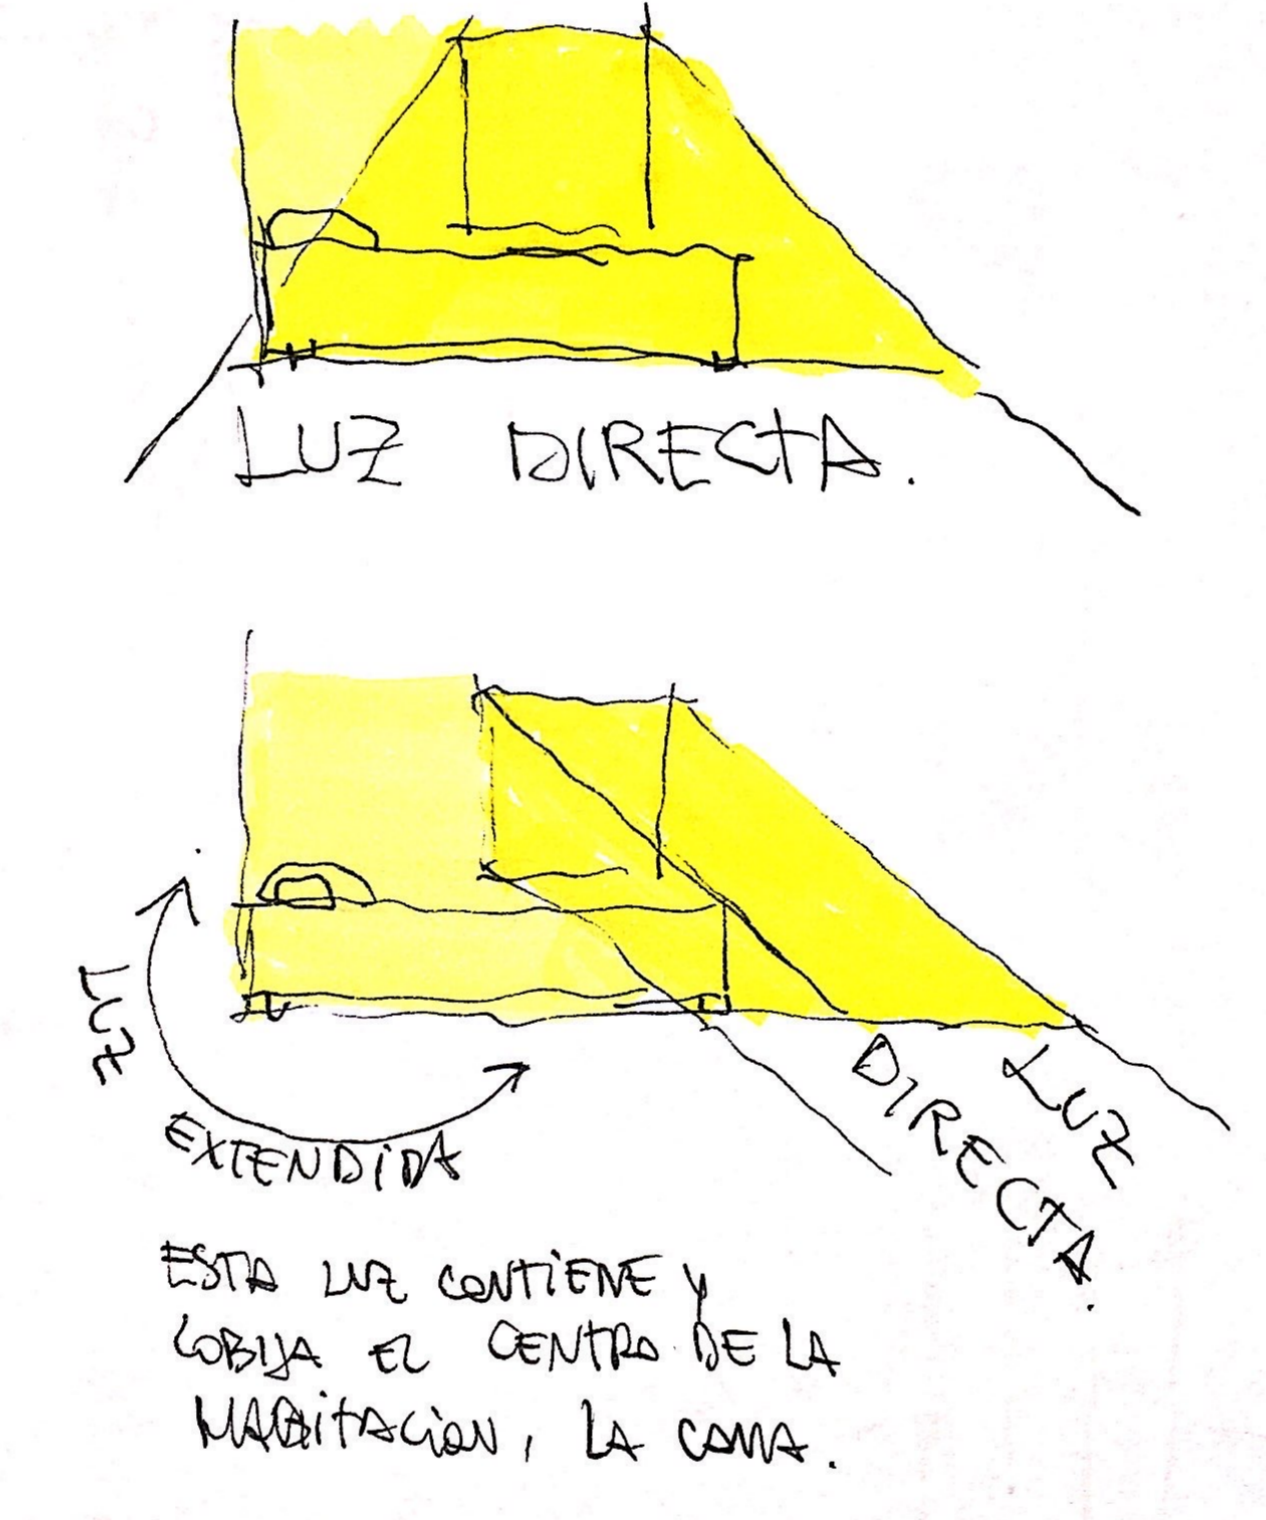 LUZ DIRECTA.
LUZ
EXTENDIDA
LUZ
DIRECTA.
ESTA LUZ CONTIENE Y
COBIJA EL CENTRO DE LA
HABITACION, LA CAMA.